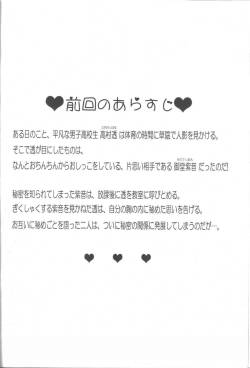 ❤前回のあらすじ❤
ある日のこと、平凡な男子高校生 高村透 は体育の時間に草陰で人影を見かける。
そこで透が目にしたものは、
なんとおちんちんからおしっこをしている、片思い相手である 御堂紫音 だったのだ!
秘密を知られてしまった紫音は、放課後に透を教室に呼びとめる。
ぎくしゃくする紫音を見かねた透は、自分の胸の内に秘めた思いを告げる。
お互いに秘めごとを語った二人は、ついに秘密の関係に発展してしまうのだが…。
❤ ❤ ❤